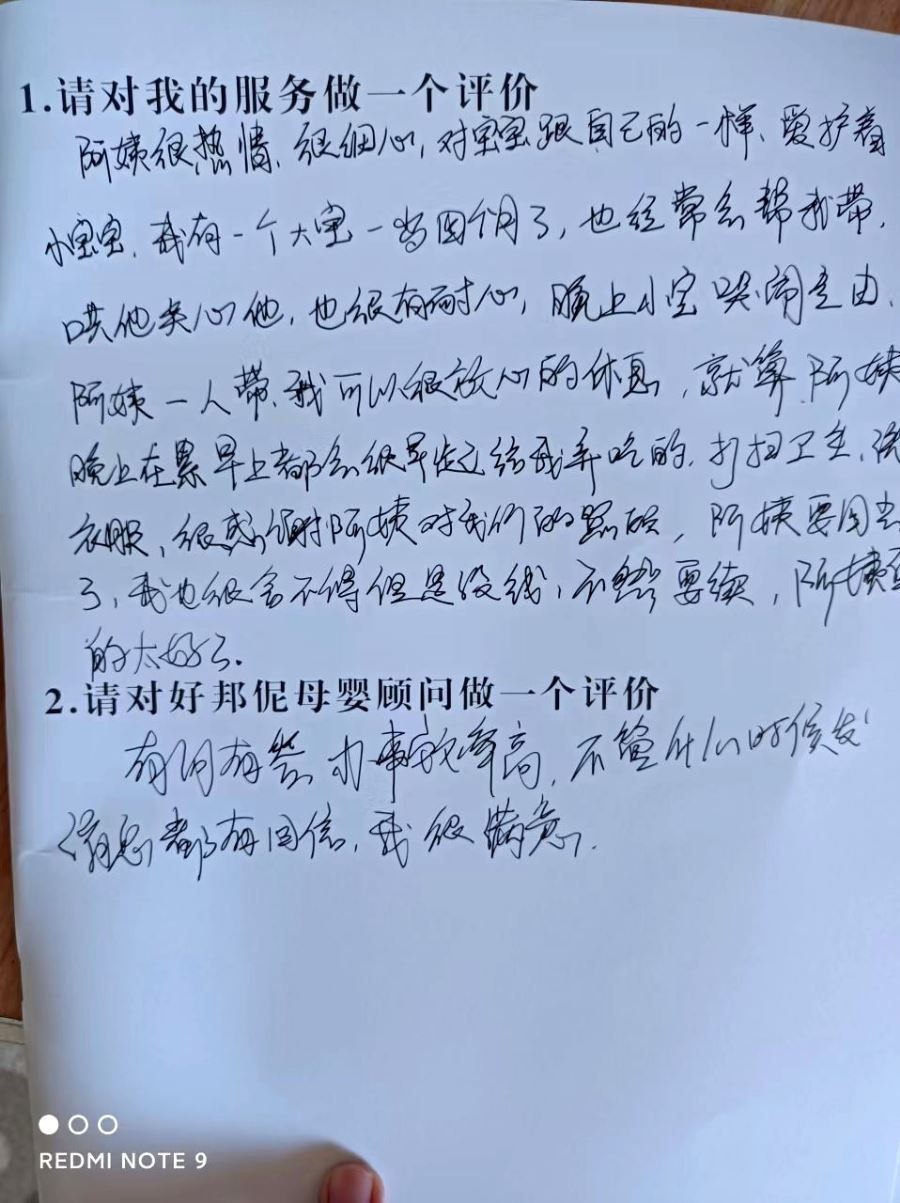 1.请对我的服务做一个评价
阿姨很热情、很细心,对宝宝跟自己的一样、爱护着
小宝宝、我有一个大宝一岁四个月了,也经常会帮我带,
哄他关心他,也很有耐心,晚上小宝哭闹主由、
阿姨一人带、我可以很放心的休息,就算阿姨
晚上在累早上都会很早起给我弄吃的、打扫卫生、洗
衣服,很感谢阿姨对我们的照顾,阿姨要回去
了,我也很舍不得但是没钱,不然要续,阿姨真
的太好了.
2.请对好邦伲母婴顾问做一个评价
有问有答 办事效率高,不管什么时候发
消息都有回信,我很满意.
REDMI NOTE 9